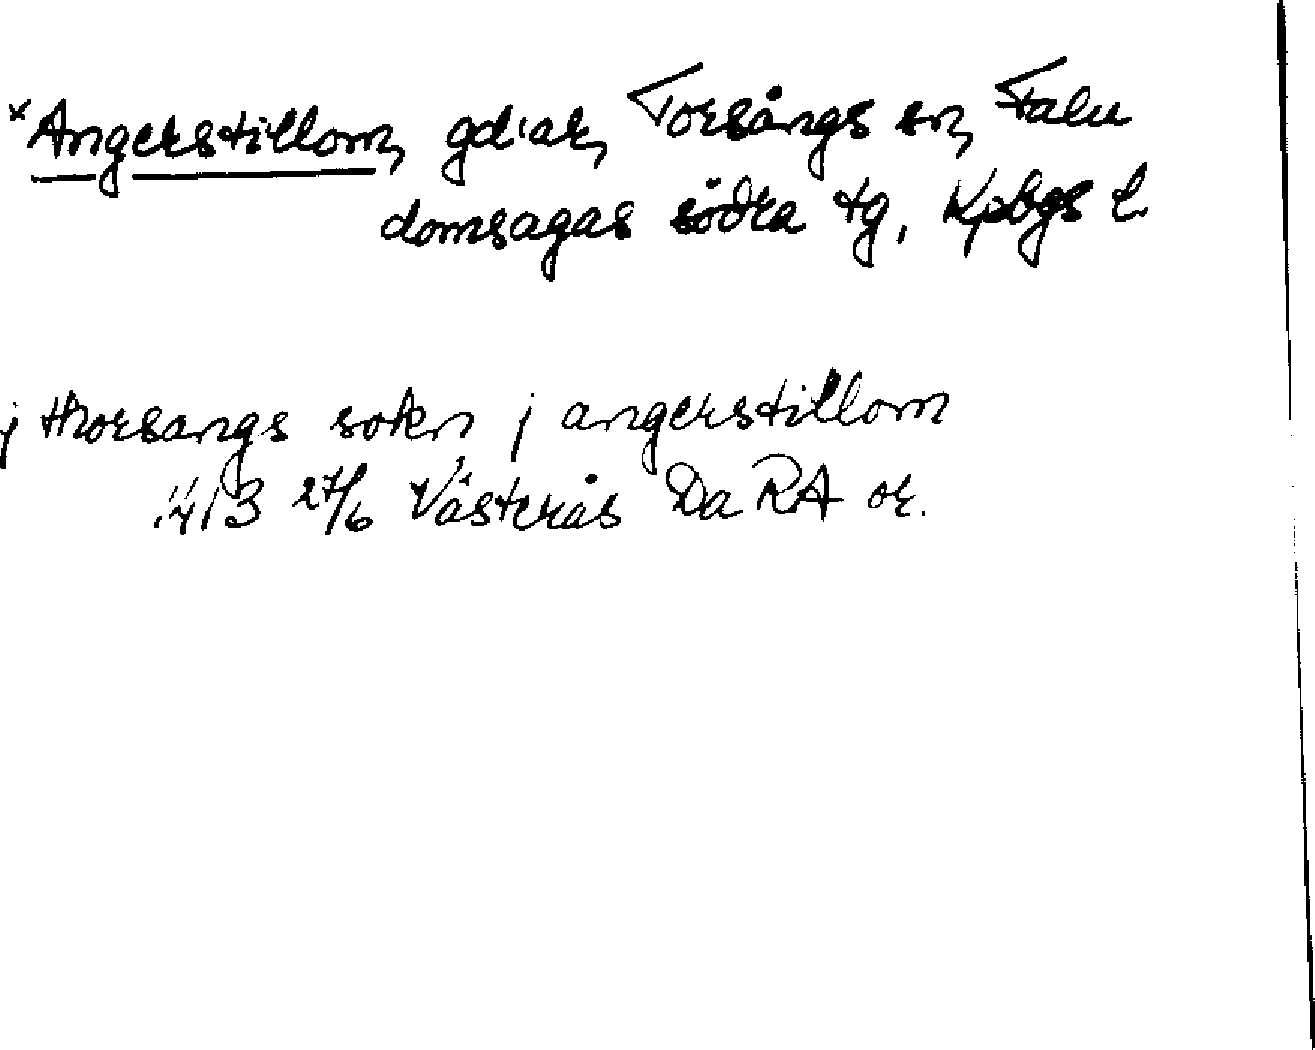 *Angerstillom, gdar, Torsångs sn, Falu
domsagas södra tg, Kpbgs l.
j thorsangs sokn j angerstillom
1413 27/6 Västerås Da RA or.